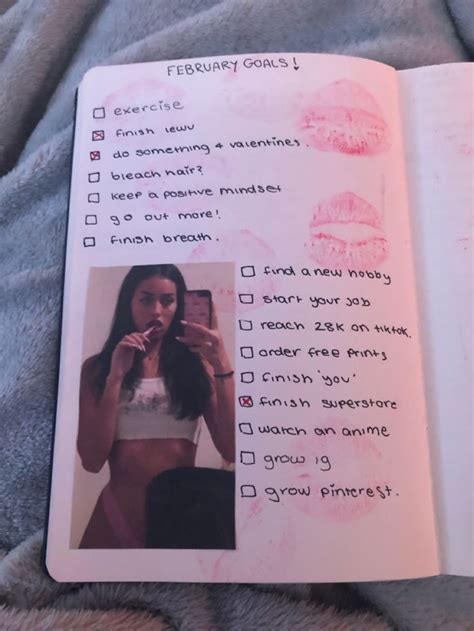 FEBRUARY GOALS!
exercise
finish lewu
do something 4 valentines.
bleach hair?
keep a positive mindset
go out more!
finish breath.
find a new hobby
start your job
reach 28K on tiktok.
order free prints
finish 'you'
finish superstore
watch an anime
grow ig
grow pinterest.